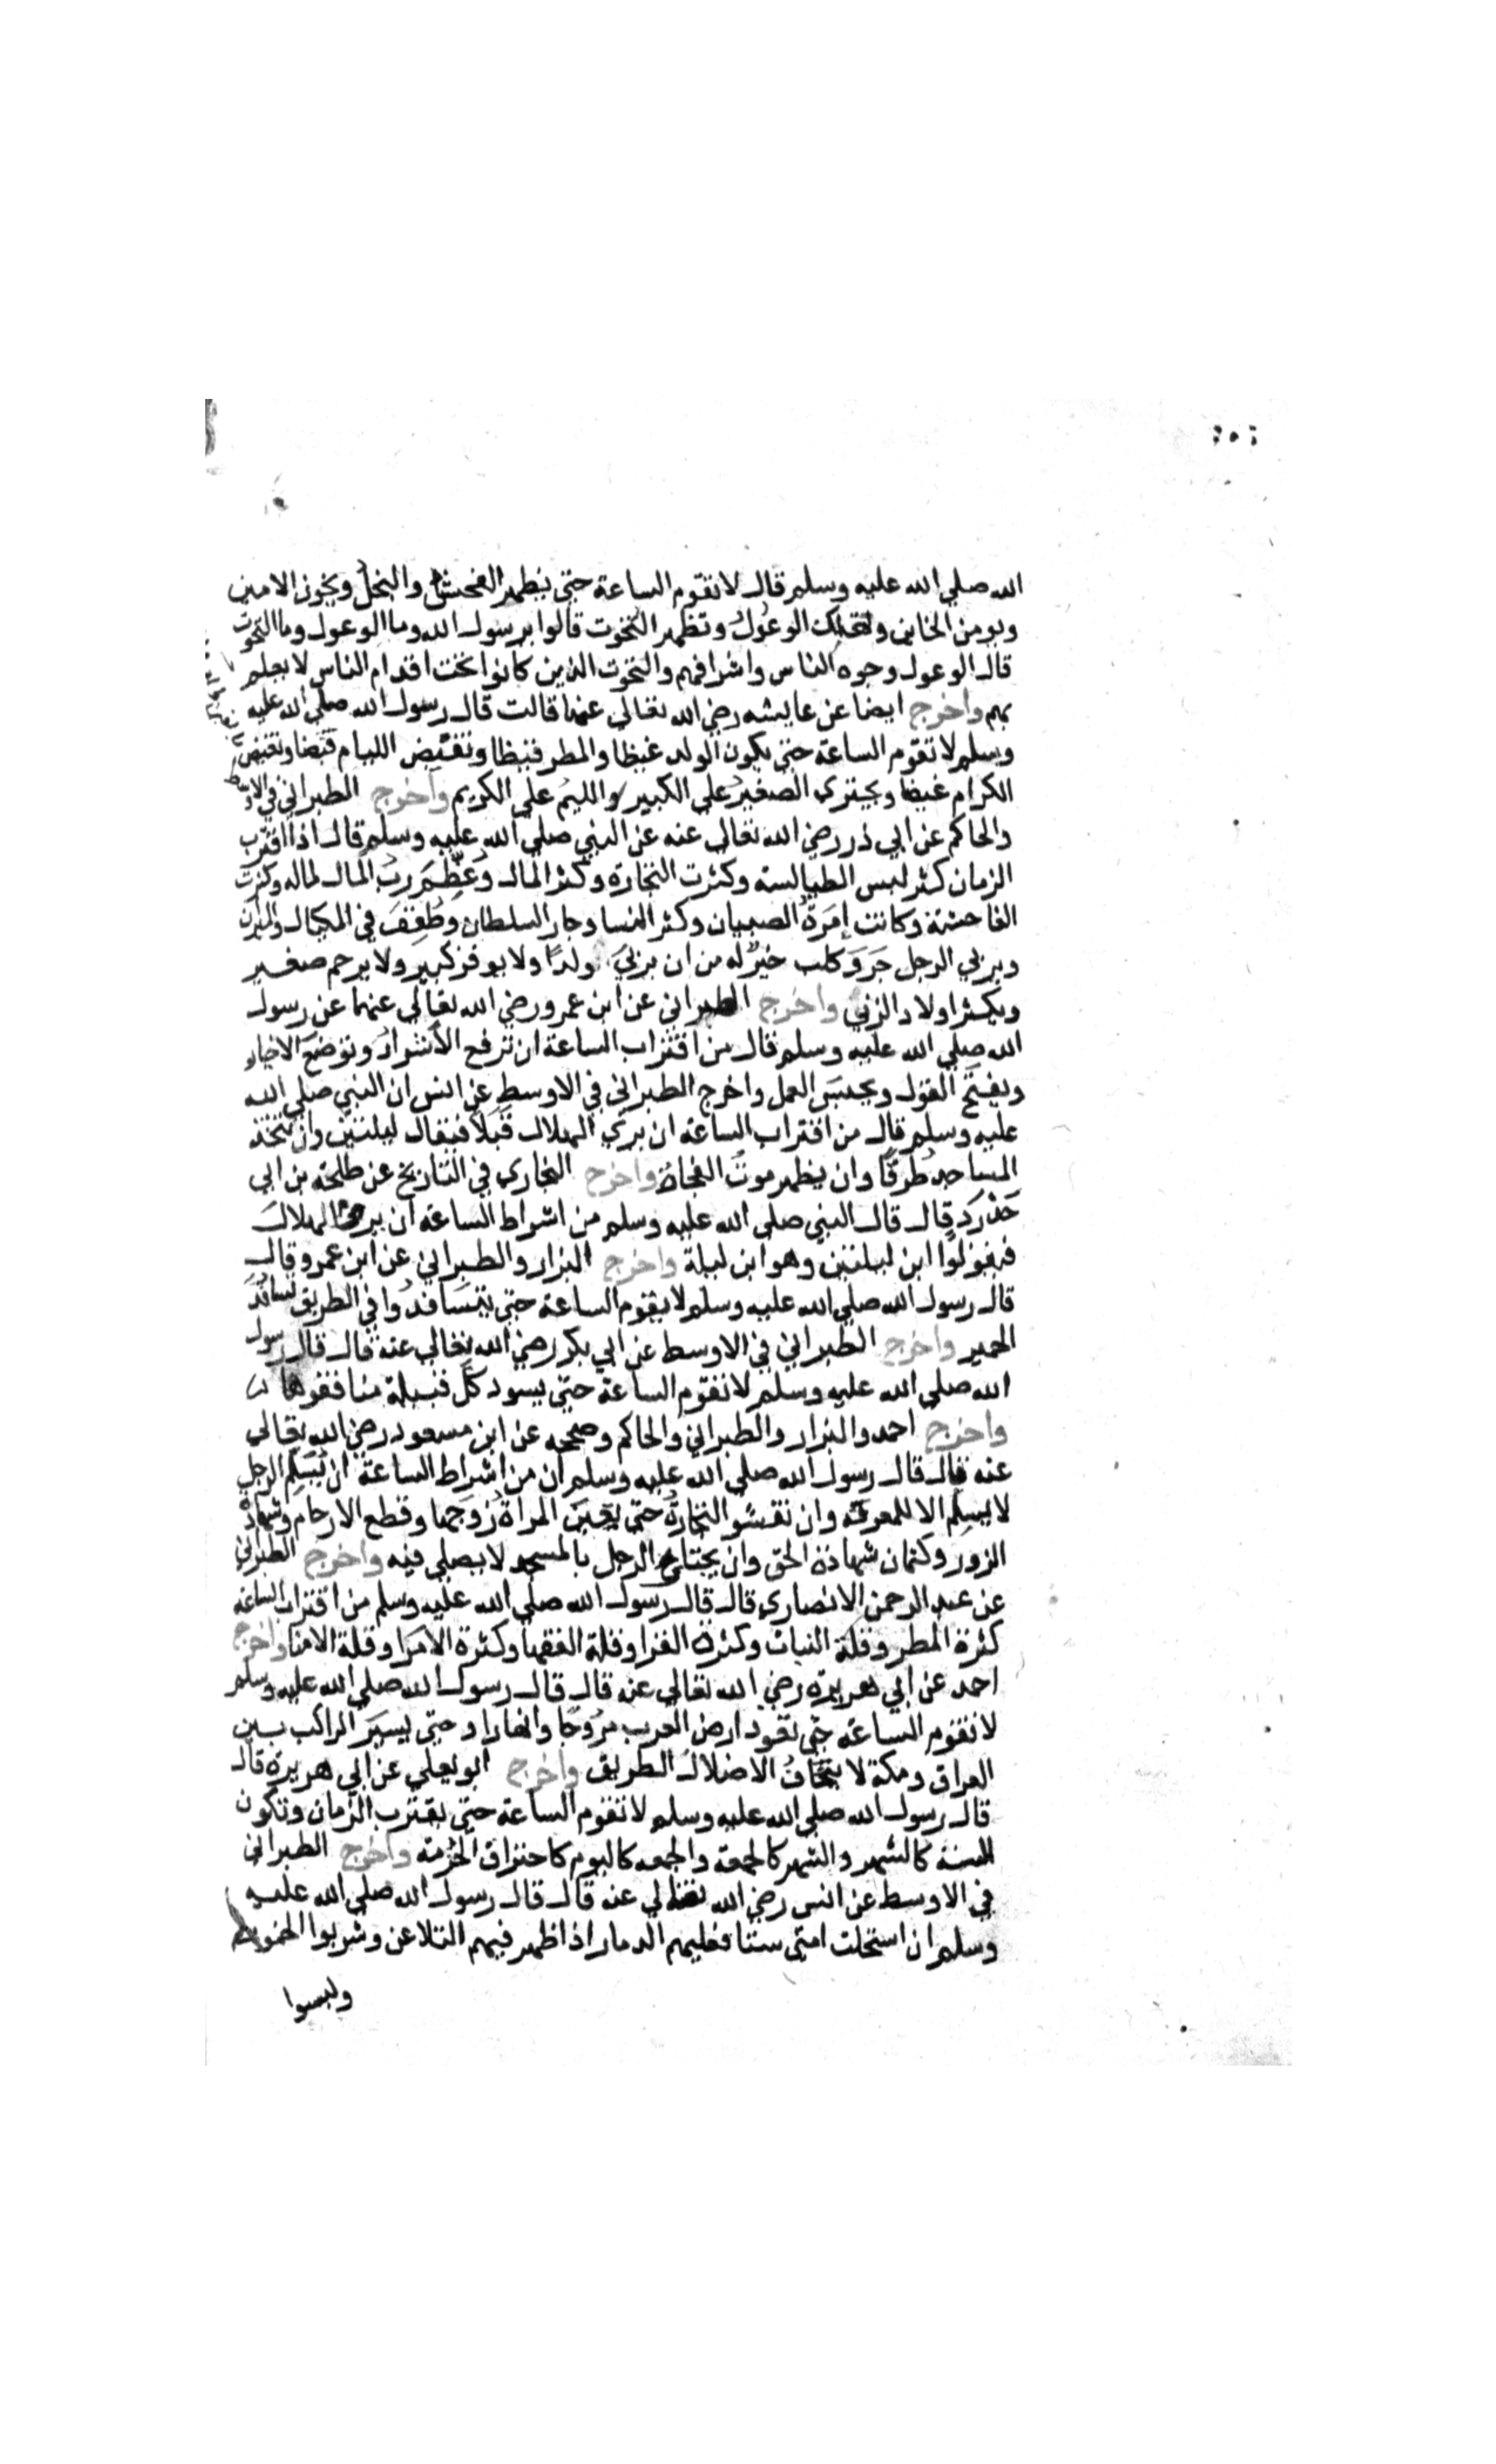 الله صلي الله عليه وسلم قال لا تقوم الساعة حتى يظهر الفحش والبخل ويخون الامين
ويومن الخاين وتهلك الوعول وتظهر التحوت قالوا يرسول الله وما الوعول وما التحوت
قال الوعول وجوه الناس واشرافهم والتحوت الذين كانوا تحت اقدام الناس لا يعلم
بهم واخرج ايضا عن عايشه رضي الله تعالى عنها قالت قال رسول الله صلي الله عليه
وسلم لا تقوم الساعة حتى يكون الولد غيظا والمطر قيظا وتفيض الليام فيضا وتغيض
الكرام غيضا ويجتري الصغير على الكبير واللييم على الكريم واخرج الطبراني في الاوسط
والحاكم عن ابي ذر رضي الله تعالى عنه عن النبي صلي الله عليه وسلم قال اذا اقترب
الزمان كثر لبس الطيالسة وكثرت التجارة وكثر المال وعظم رب المال لماله وكثرت
الفاحشة وكانت إمرة الصبيان وكثر النسا وجار السلطان وطفف في المكيال والميزان
ويربي الرجل جرو كلب خير له من ان يربي ولدا ولا يوقر كبير ولا يرحم صغير
ويكثر اولاد الزني واخرج الطبراني عن ابن عمرو رضي الله تعالي عنهما عن رسول
الله صلي الله عليه وسلم قال من اقتراب الساعة ان ترفع الأشرار وتوضع الاخيار
ويفتح القول ويحبس العمل واخرج الطبراني في الاوسط عن انس ان النبي صلي الله
عليه وسلم قال من اقتراب الساعة ان يري الهلال قبلا فيقال لليلتين وان تتخذ
المساجد طرقا وان يظهر موت الفجاة واخرج البخاري في التاريخ عن طلحة بن ابي
حدرد قال قال النبي صلي الله عليه وسلم من اشراط الساعة ان يرى الهلال
فيقولوا ابن ليلتين وهو ابن ليلة واخرج البزار والطبراني عن ابن عمرو قال
قال رسول الله صلي الله عليه وسلم لا يقوم الساعة حتى يتسافدوا في الطريق تسافد
الحمير واخرج الطبراني في الاوسط عن ابي بكر رضي الله تعالي عنه قال قال رسول
الله صلي الله عليه وسلم لا تقوم الساعة حتى يسود كل قبيلة منافقوها
واخرج احمد والبزار والطبراني والحاكم وصححه عن ابن مسعود رضي الله تعالي
عنه قال قال رسول الله صلي الله عليه وسلم ان من اشراط الساعة ان يسلم الرجل
لا يسلم الا للمعرفة وان تفشو التجارة حتى تعين المراة زوجها وقطع الارحام وشهادة
الزور وكتمان شهادة الحق وان يجتاح الرجل بالمسجد لا يصلي فيه واخرج الطبراني
عن عبد الرحمن الانصاري قال قال رسول الله صلي الله عليه وسلم من اقتراب الساعة
كثرة المطر وقلة النبات وكثرة القرا وقلة الفقها وكثرة الامرا وقلة الامنا واخرج
احمد عن ابي هريرة رضي الله تعالى عنه قال قال رسول الله صلي الله عليه وسلم
لا تقوم الساعة حتى تعود ارض العرب مروجا وانهارا وحتى يسير الراكب بين
العراق ومكة لا يخاف الا ضلال الطريق واخرج ابو يعلي عن ابي هريرة قال
قال رسول الله صلي الله عليه وسلم لا تقوم الساعة حتى يقترب الزمان وتكون
السنة كالشهر والشهر كالجمعة والجمعه كاليوم كاحتراق الحزمة واخرج الطبراني
في الاوسط عن انس رضي الله تعالي عنه قال قال رسول الله صلي الله عليه
وسلم ان استحلت امتي ستا فعليهم الدمار اذا ظهر فيهم التلاعن وشربوا الخمور
ولبسوا